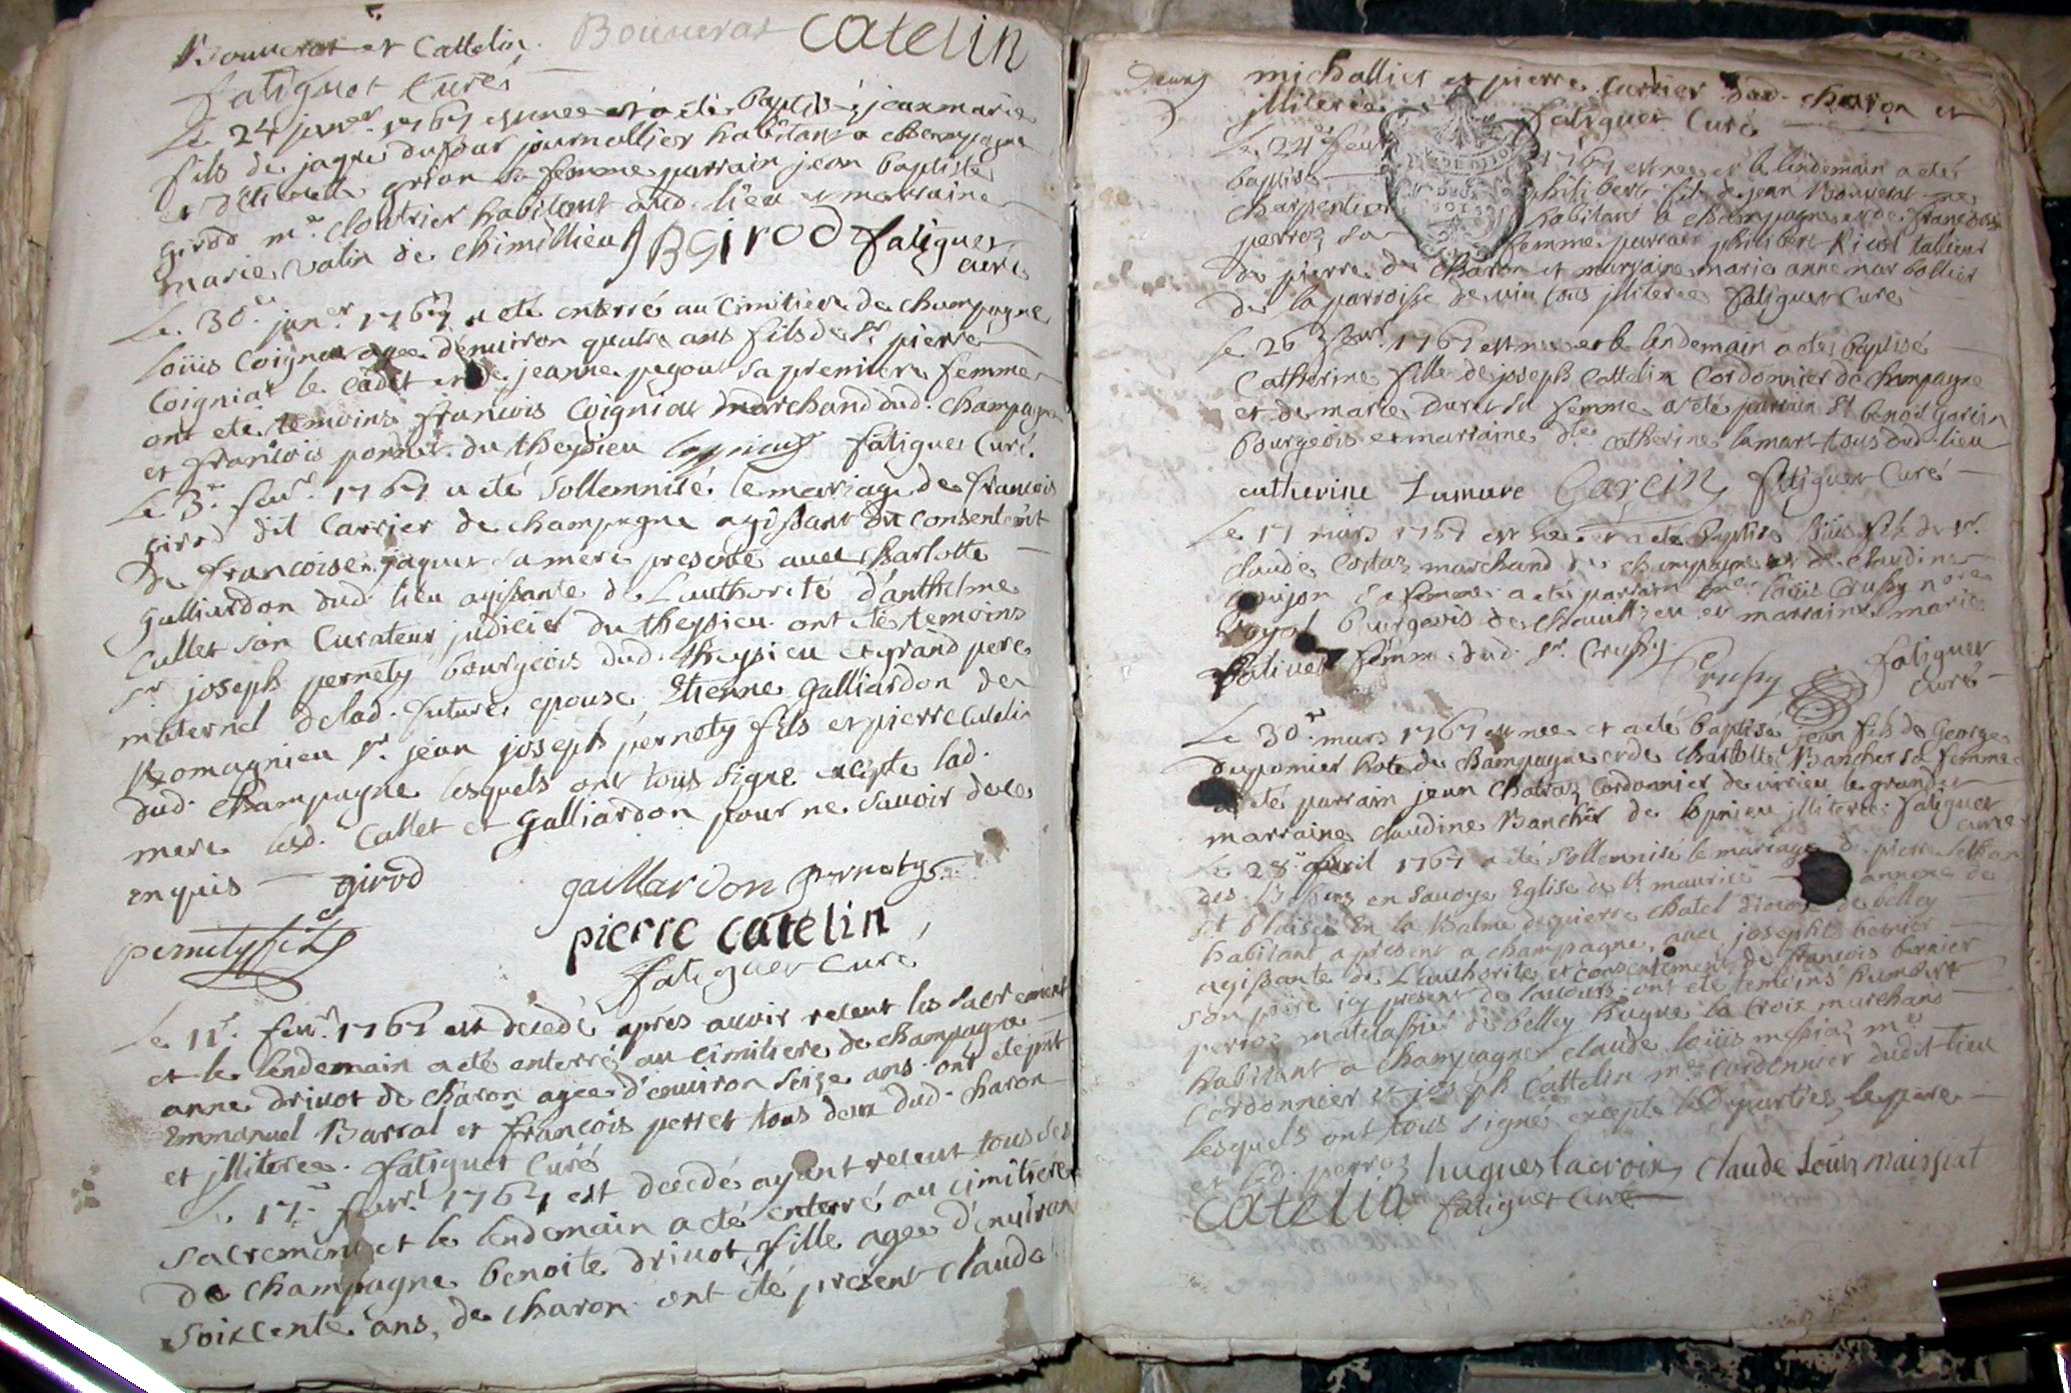 Bouverat et Cattelin. Bouverat catelin
fatiguet Curé
Le 24 janer. 1767 est nee et a été baptisé jean marie
fils de jaque dufour journallier habitant a champagne
et d'étiennette grion sa femme parrain jean baptiste
girod me. cloutrier habitant aud. lieu et marraine
marie vatin de chimillieu JBGirod fatiguet
curé
Le 30e. janer. 1767 a été enterré au Cimitiere de champagne
loüis Coignat agee d'environ quatre ans fils de sr. pierre
Coigniat le cadet et de jeanne pegout sa premiere femme
ont eté témoins francois Coigniat marchand dud. champagne
et francois pornet du theysieu fatiguet Curé.
Le 3e. fevr. 1767 a été Sollemnisé le mariage de francois
girod dit Carrier de champagne agissant du consentem̃t
de francoise jaquet sa mere presente avec charlotte
galliardon dud. lieu agissante de L'authorité d'anthelme
Cullet son Curateur judiciel du theysieu ont été temoins
sr. joseph pernety bourgeois dud. theysieu et grand pere
maternel de lad. future epouse, Etienne galliardon de
Romagnieu sr. jean joseph pernety fils et pierre Catelin
dud. champagne lesquels ont tous signe excepte lad.
mere lesd. Callet et galliardon pour ne savoir de ce
enquis girod gaillardon pernety
pernety fils pierre catelin
fatiguet curé
Le 11e. fevr. 1767 est decedé aprés avoir receut les sacrement
et le lendemain a été enterré au cimitiere de champagne
anne drivot de charon agee d'environ seize ans ont été pnt
Emmanuel Barral et francois perret tous deux dud. charon
et jlliteree. fatiguet curé
Le 17e. fevr. 1767 est decedé ayant receut tous ses
sacrement et le lendemain a été enterré au cimitiére
de champagne benoite drivot fille agee d'environ
soixcente ans, de charon ont été present claude
michallet et pierre Carrier dud. charon et
jlliteree fatiguet Curé
Le 24e fevr 1767 est nee et le lendemain a été
baptisé philibert fils de jean Bouverat me
charpentier habitant a champagne et de francoise
perroz sa femme parrain philibert Riod tallieur
de pierre de charon et marraine marie anne narbollier
de la parroisse de vieu tous jlliteree fatiguet Curé
Le 26 fevr. 1767 est nee et le lendemain a été baptisé
Catherine fille de joseph Cattelin Cordonnier de champagne
et de marie Duret sa femme a été parrain Sr benoit garcin
bourgeois et marraine dlle catherine lamare tous dud. lieu
catherine Lamare Garcin fatiguet Curé
Le 17 mars 1767 est nee et a été baptisé loüis fils de sr.
claude Costaz marchand de champagne et de claudine
goujon sa femme a été parrain me loüis Crussy nore
Royal bourgeois de et marraine marie
femme dud. sr. Crussy.
Crussy fatiguet
curé
Le 30e. mars 1767 est nee et a été baptisé jean fils de George
dupomier hote de champagne et de charlotte Bancher sa femme
a été parrain jean Chatraz Cordonnier de virieu le grand et
marraine claudine Bancher de lopnieu jlliteree. fatiguet
curé
Le 28e. avril 1767 a été sollemnisé le mariage de pierre
des en savoye Eglise de st. maurice annexe de
st blaise en la Balme de pierre chatel diocese de belley
habitant a present a champagne, avec josephte bernier
agissante de L'authorité et consentement de francois bernier
son pere icy present de ont été temoins humbert
perroz matelassier de belley hugue la croix marchand
habitant a champagne claude loüis messiaz me.
cordonnier et joseph Cattelin me cordonnier dudit lieu
lesquels ont tous signé excepté led. parties, le pere
et led. perroz hugues lacroix claude Louis maissiat
catelin fatiguet curé